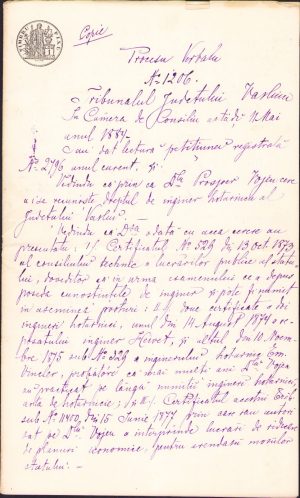 Copie
Procesu Verbalu
No 1206.
Tribunalul Judetului Vaslui
In Camera de Consiliu astadi 12 Mai
anul 1884.
S'au dat lectura petitiunei registrată
No 2796 anul curent, și
Vedendu că prin ea Dlu Prosper Vojeu cere
a i se recunoște dreptul de inginer hotarnicu al
Judetului Vaslui —
Vedendu că Dlui odată cu acea cerere au
presentatu: 1/ Certificatul No 526 din 13 oct. 1873
al consiliului technic a lucrărilor publice al statu
lui, doveditor că in urma esamenului ce a depus
poseda cunostintele de inginer și pote fi numit
in asemenea posturi: II/ Doue certificate a doi
ingineri hotarnici, unul din 14 August 1874 a re
posatului inginer Heivet, și altul din 10 Noem
bre 1875 sub No 226 a inginerului hotarnic Em.
, că mai multi ani Dlui Vojeu
au practicat pe langă numitii ingineri hotarnici,
arta de hotarnicie; și III/ Certificatul acestui
sub No 11400, din 15 Iunie 1877 prin care sau autori
sat pe Dlui Vojeu a intreprinde lucrări de ridicare
de planuri economice, pentru arendarea mosiilor
statului: —